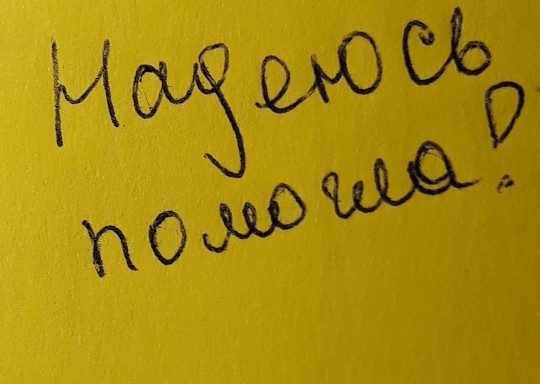 Надеюсь
помогла!